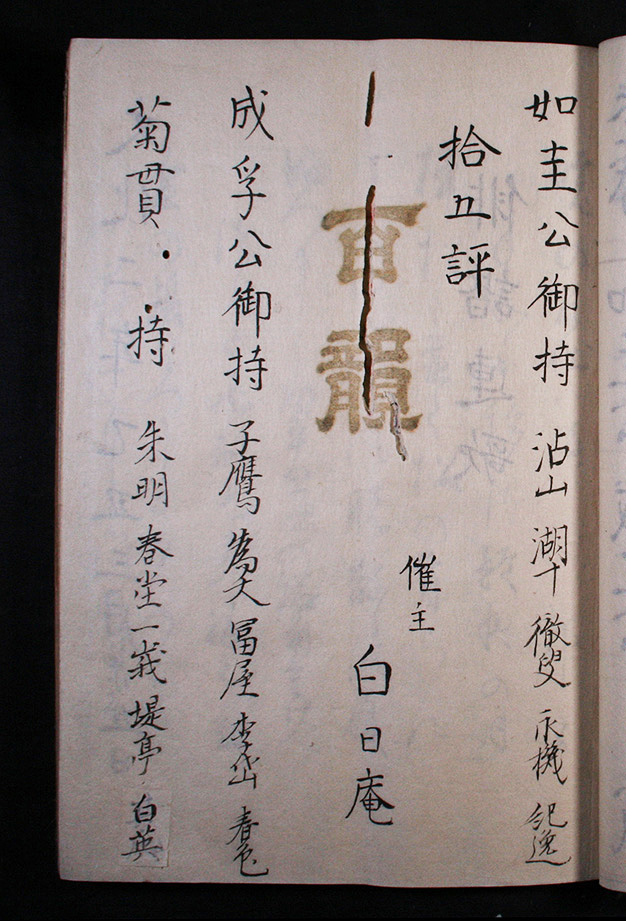 如圭公御持 沾山 湖十 徹叟 永機 紀逸
拾五評
百韻
催主
白日庵
成孚公御持 子鷹 為文 冨屋 李岱 春色
菊貫 持 朱明 春堂 一峩 堤亭 白英